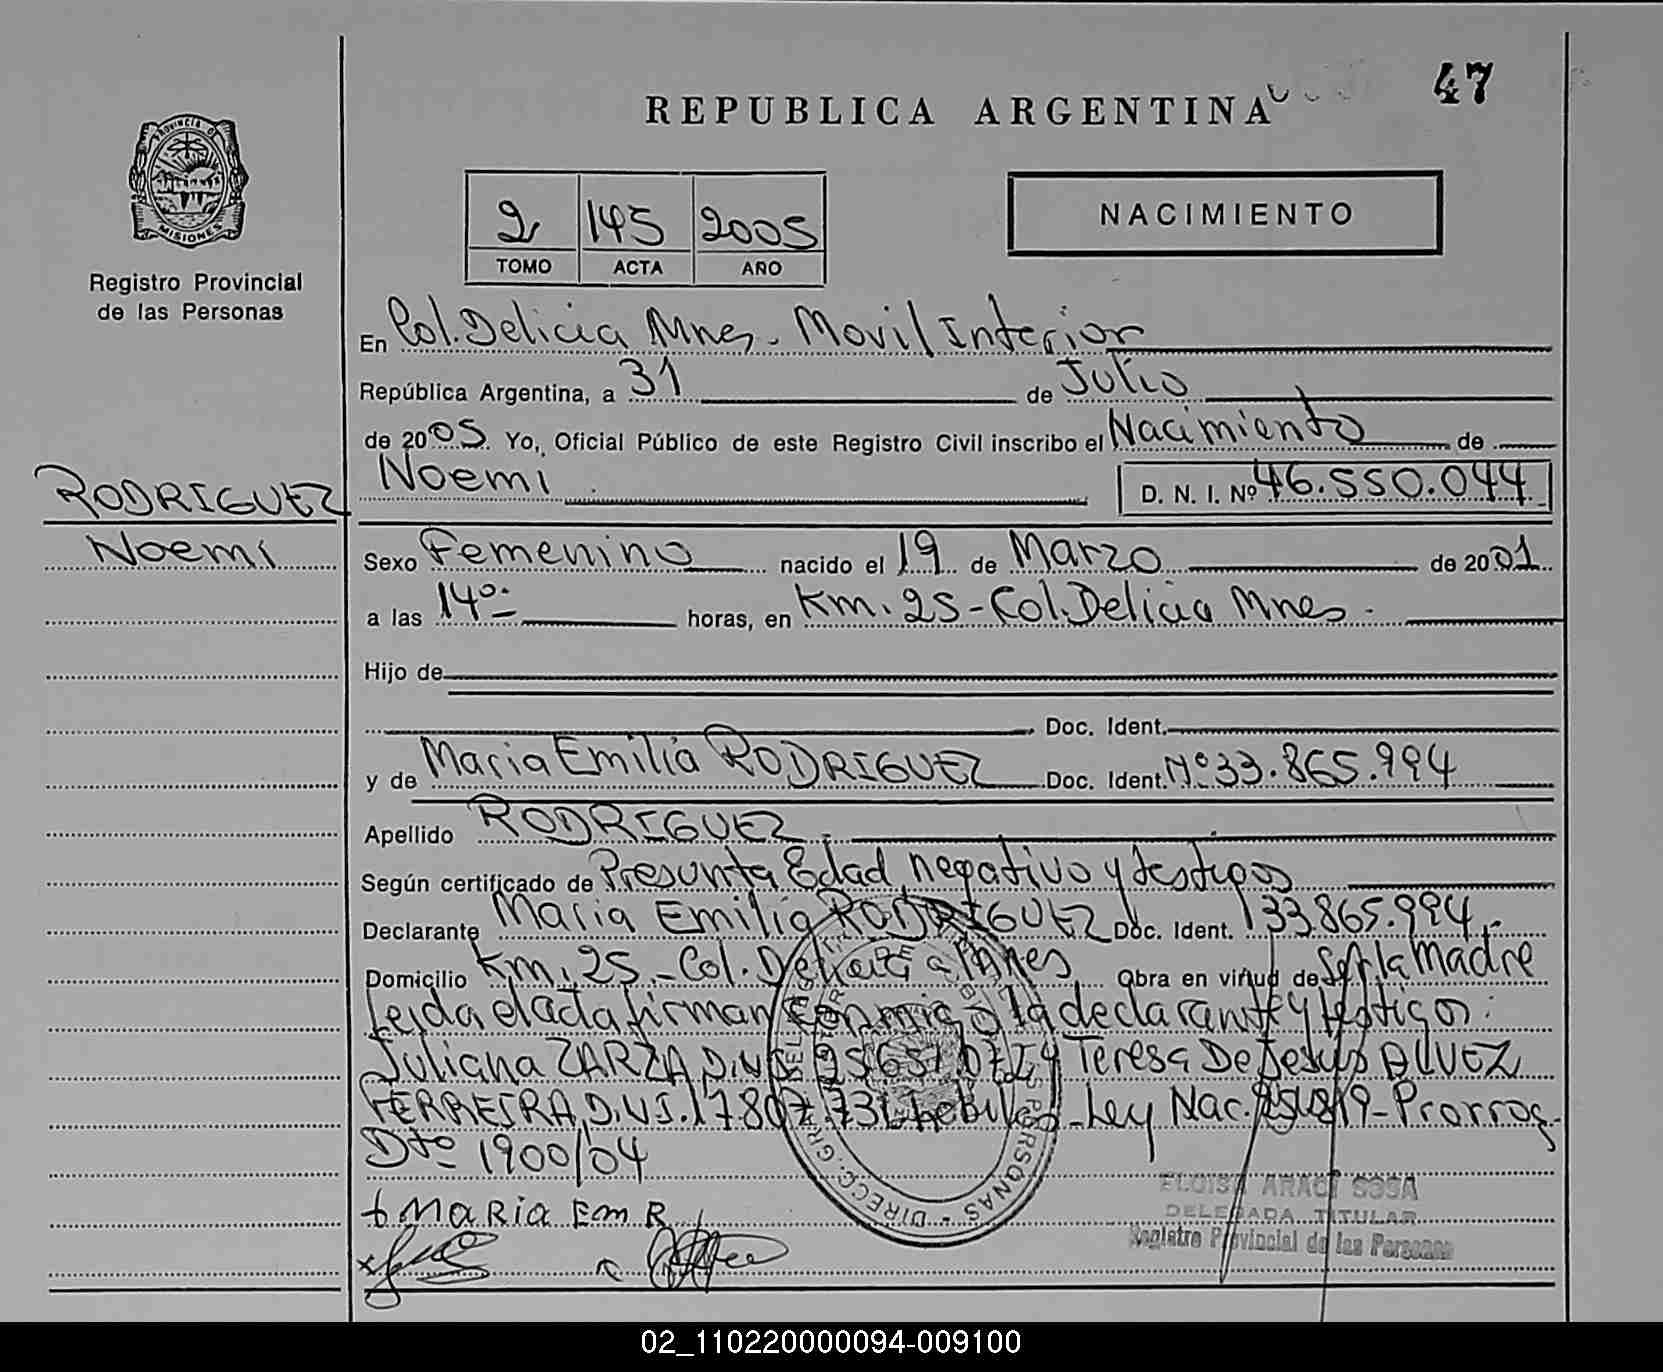 47
REPUBLICA ARGENTINA
PROVINCIA DE
MISIONES
Registro Provincial
de las Personas
2 145 2005
TOMO ACTA AÑO
NACIMIENTO
En Col. Delicia Mnes. Movil Interior
República Argentina, a 31 de Julio
de 2005. Yo, Oficial Público de este Registro Civil inscribo el Nacimiento de
Noemi D. N. I. Nº 46.550.044
RODRIGUEZ
Noemi
Sexo Femenino nacido el 19 de Marzo de 2001
a las 14º horas, en Km. 25 - Col. Delicia Mnes.
Hijo de
Doc. Ident.
y de Maria Emilia RODRIGUEZ Doc. Ident. Nº 33.865.994
Apellido RODRIGUEZ
Según certificado de Presunta Edad negativo y testigos
Declarante Maria Emilia RODRIGUEZ Doc. Ident. 33865.994.
Domicilio Km. 25 - Col. Delicia Mnes Obra en virtud de Ser la Madre
Leida el acta firman conmigo la declarante y testigos:
Juliana ZARZA D.N.I. Teresa De Jesus ALVEZ
FERREIRA D.N.I. Ley Nac. 25.819 - Prorrog.
Dto 1900/04
MaRia Em R
ELOISA ARACI SOSA
DELEGADA TITULAR
Registro Provincial de las Personas
02_110220000094-009100